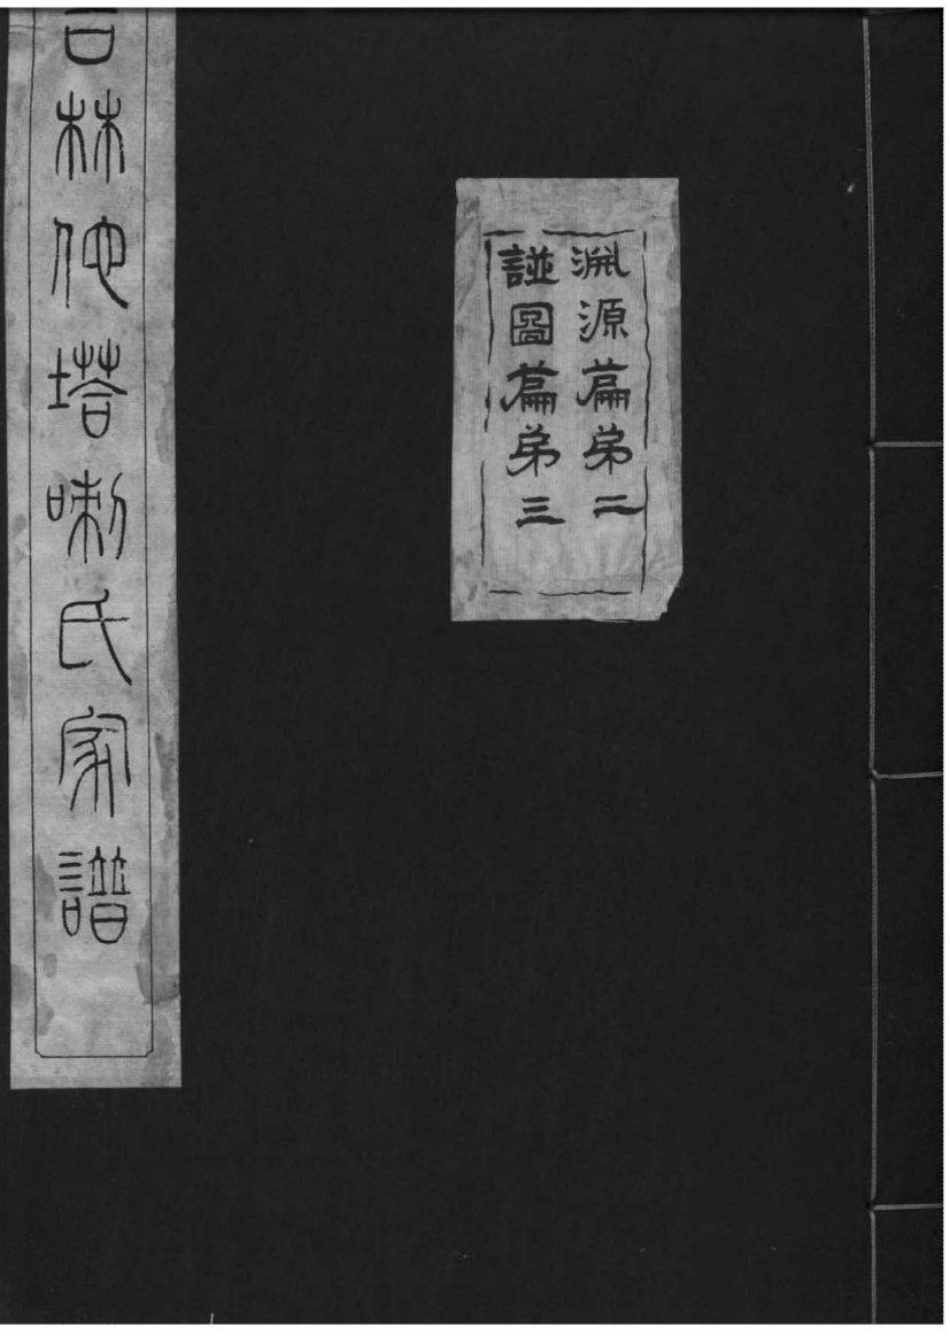 淵源篇弟二
譜圖篇弟三
吉林他塔喇氏家譜